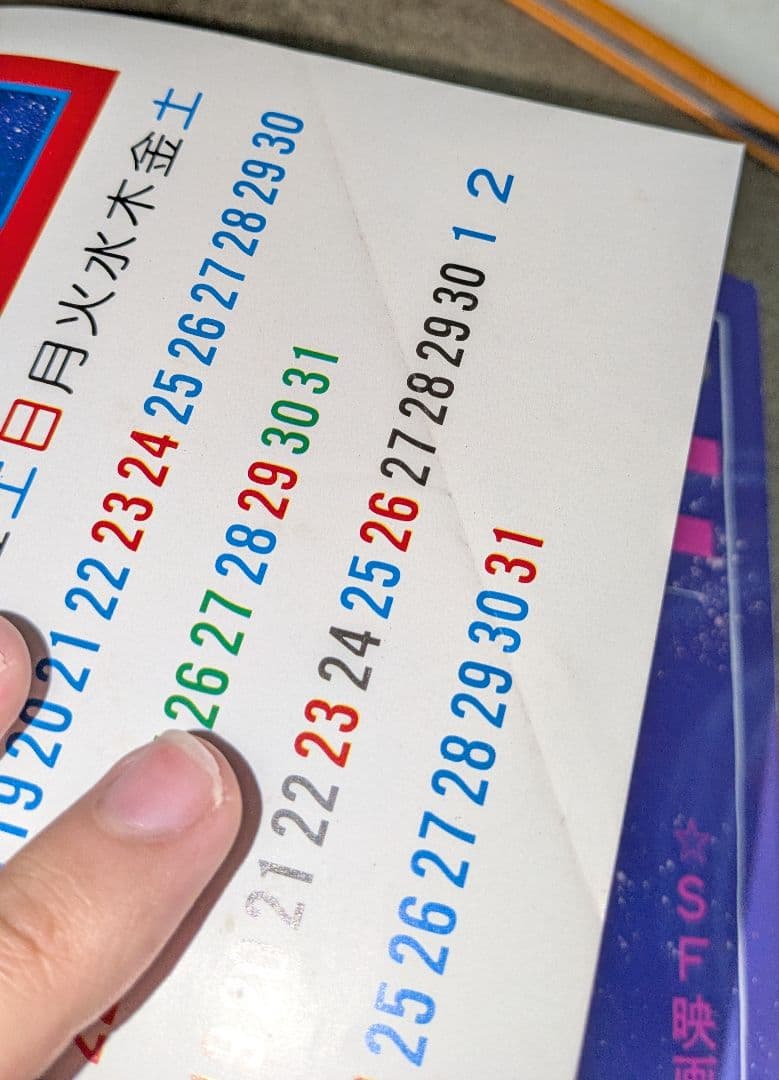 土日月火水木金土
19 20 21 22 23 24 25 26 27 28 29 30
26 27 28 29 30 31
21 22 23 24 25 26 27 28 29 30 1 2
25 26 27 28 29 30 31
☆SF映画